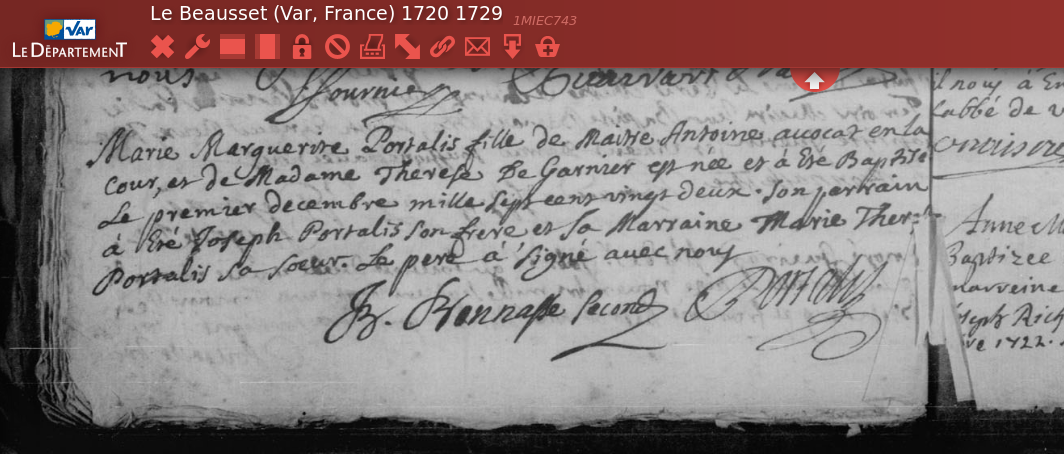 Le Beausset (Var, France) 1720 1729 1MIEC743
Var
LE DÉPARTEMENT
nous
ffournier
Marie Marguerite Portalis fille de Maitre Antoine avocat en la
Cour, et de Madame Therese De Garnier est née et à Eté Baptisée
Le premier decembre mille sept cent vingt deux. Son parrain
à Eté Joseph Portalis son frere et sa Marraine Marie Ther
Portalis sa soeur. Le pere à signé avec nous
B. Bonnasse second Portalis
il nous à
L'abbé de
Anne M
Baptizée
marreine
Joseph Rich
1722.